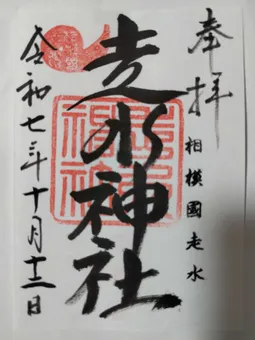 奉拝
相模國走水
走水神社
令和七年十月十二日